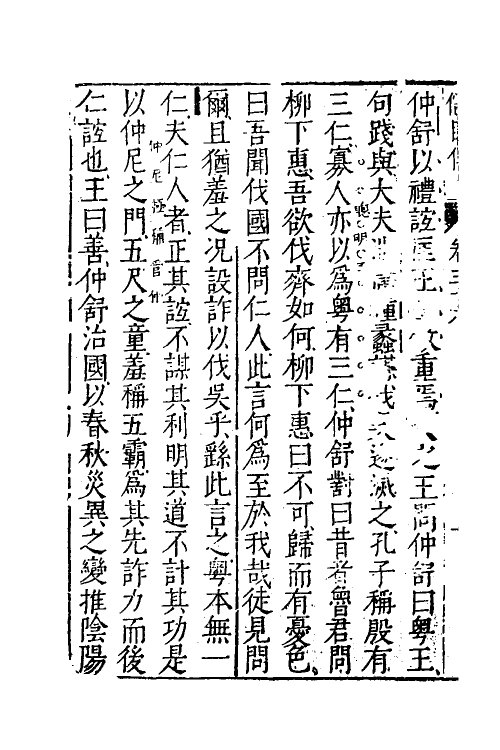 仲舒以禮誼匡正王敬重焉久之王問仲舒曰粤王
句踐與大夫泄庸種蠡謀伐吳遂滅之孔子稱殷有
三仁寡人亦以爲粤有三仁仲舒對曰昔者魯君問
柳下惠吾欲伐齊如何柳下惠曰不可歸而有憂色
曰吾聞伐國不問仁人此言何爲至於我哉徒見問
爾且猶羞之况設詐以伐吳乎繇此言之粤本無一
仁夫仁人者正其誼不謀其利明其道不計其功是
以仲尼之門五尺之童羞稱五霸爲其先詐力而後
仁誼也王曰善仲舒治國以春秋災異之變推陰陽